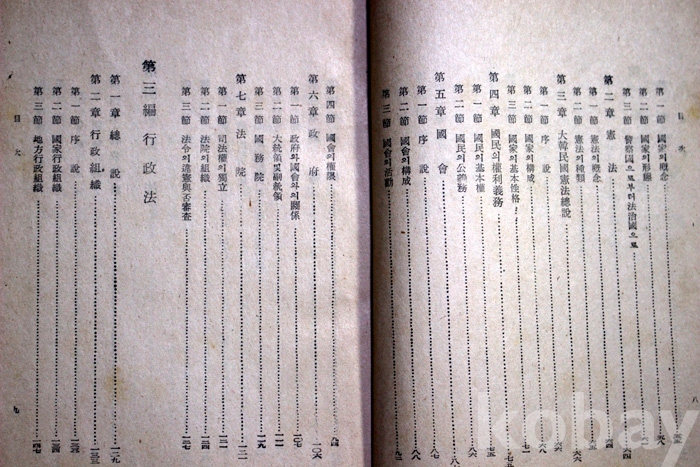 目 次
八
第一節 國家의槪念
第二節 國家의形態
第三節 警察國으로부터法治國으로
第二章 憲 法
第一節 憲法의槪念
第二節 憲法의種類
第三章 大韓民國憲法總說
第一節 序 說
第二節 國家의構成
第三節 國家의基本性格
第四章 國民의權利義務
第一節 序 說
第二節 國民의基本權
第三節 國民의公義務
第五章 國 會
第一節 序 說
第二節 國會의構成
第三節 國會의活動
目 次
九
第四節 國會의權限
第六章 政 府 一〇六
第一節 政府와國會와의關係 一〇七
第二節 大統領및副統領 一一一
第三節 國務院 一一九
第七章 法 院
第一節 司法權의獨立
第二節 法院의組織
第三節 法令의違憲與否審査
第三編 行政法
第一章 總 說 一二九
第二章 行政組織 一三三
第一節 序 說
第二節 國家行政組織
第三節 地方行政組織
kobay